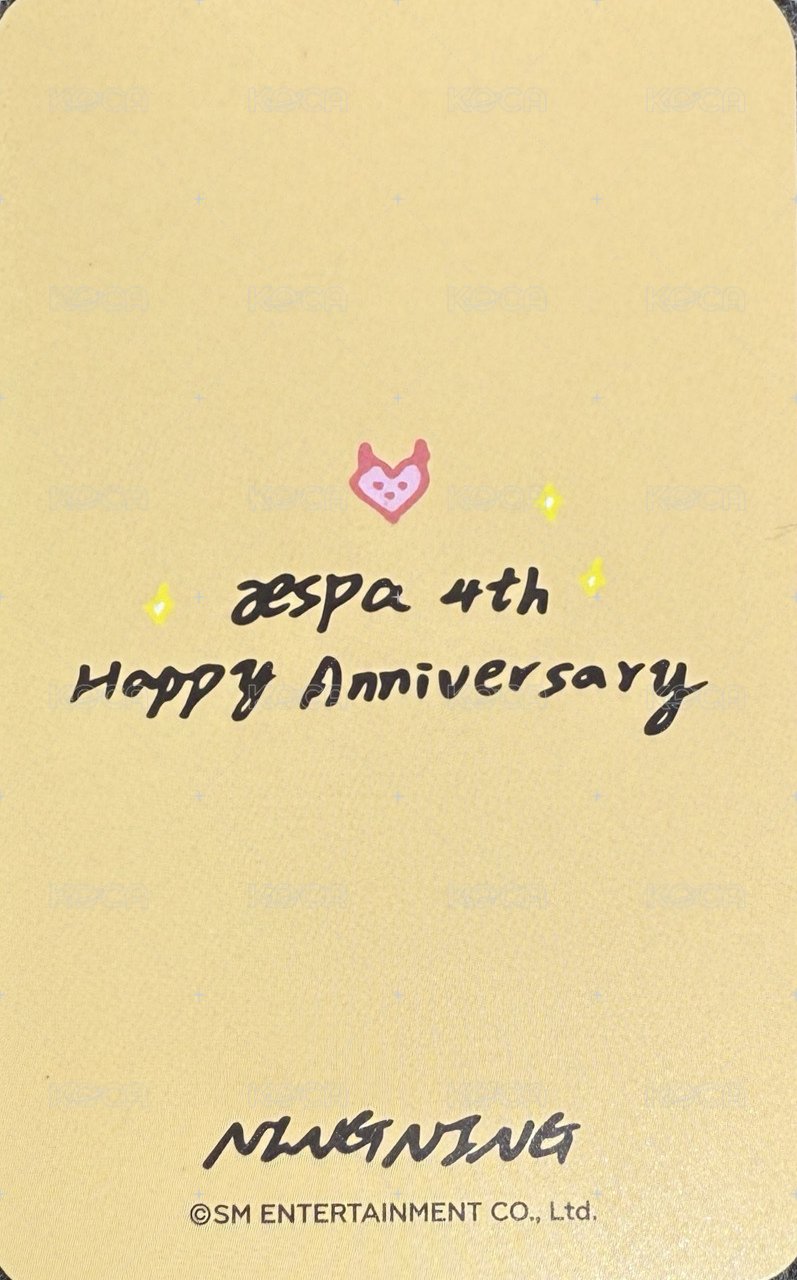 æspa 4th
Happy Anniversary
NINGNING
©SM ENTERTAINMENT CO., Ltd.
KOCA KOCA KOCA KOCA
KOCA KOCA KOCA KOCA
KOCA KOCA KOCA KOCA
KOCA KOCA KOCA KOCA
KOCA KOCA KOCA KOCA
KOCA KOCA KOCA KOCA